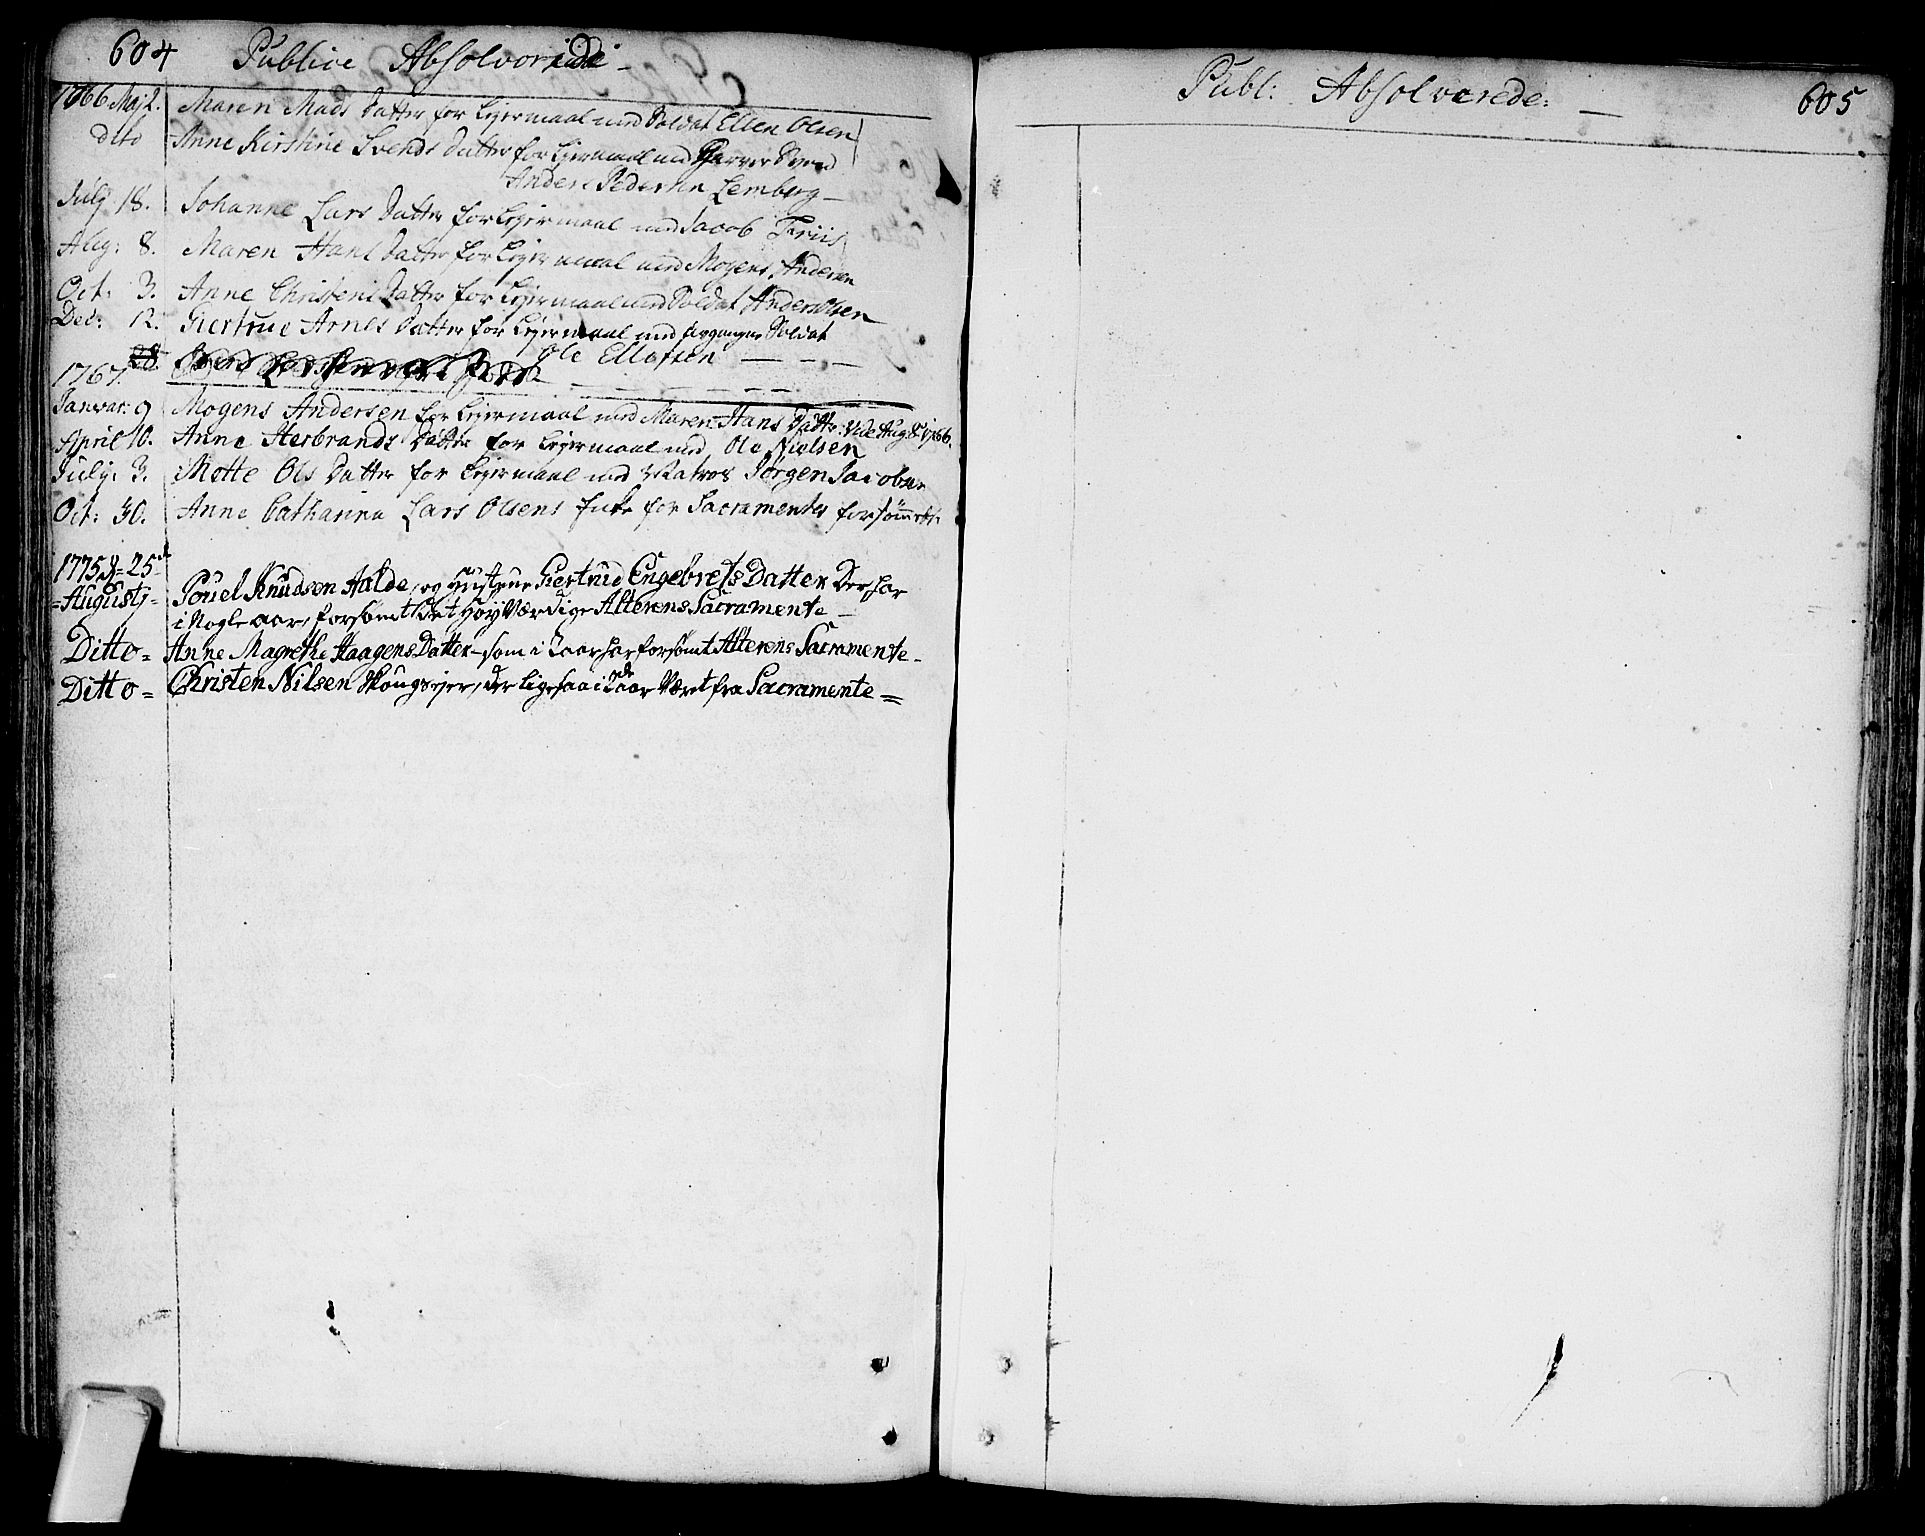 604 Publice Absolverede
1766 Maj 2. Maren Mads Datter for Lejermaal med Soldat Ellen Olsen
dito Anne Kirstine Svends Datter for Lejermaal med Garver Svend
Anders Pedersen Lemberg
Julj 18. Johanne Lars Datter for Lejermaal med Jacob Friis
Aug: 8. Maren Hans Datter for Lejermaal med Mogens Andersen
Oct: 3. Anne Christens Datter for Lejermaal med Soldat Anders Olsen
Dec: 12. Giertrue Arnes Datter for Lejermaal med Soldat
Ole Ellofsen
1767.
Januar: 9 Mogens Andersen for Lejermaal med Maren Hans Datter: vide Aug: 8 1766.
April 10. Anne Herbrands Datter for Lejermaal med Ole Nielsen
July: 3. Mette Ols Datter for Lejermaal med Matros Jörgen Jacobsen
Oct: 30. Anne Catharina Lars Olsens Enke for Sacramentes forsömelse
1775 d = 25
= Augustj = Pouel Knudsen Aalde, og Hustrue Giertrud Engebrets Datter Der har
i Nogle aar, forsömt det Höy Værdige Alterens Sacramente
Ditto = Anne Magrethe Haagens Datter som i 2 aar har forsömt Alterens Sacramente
Ditto = Christen Nilsen Skougsejer, der ligesaa i 2de aar Været fra Sacramente =
Publ: Absolverede: 605